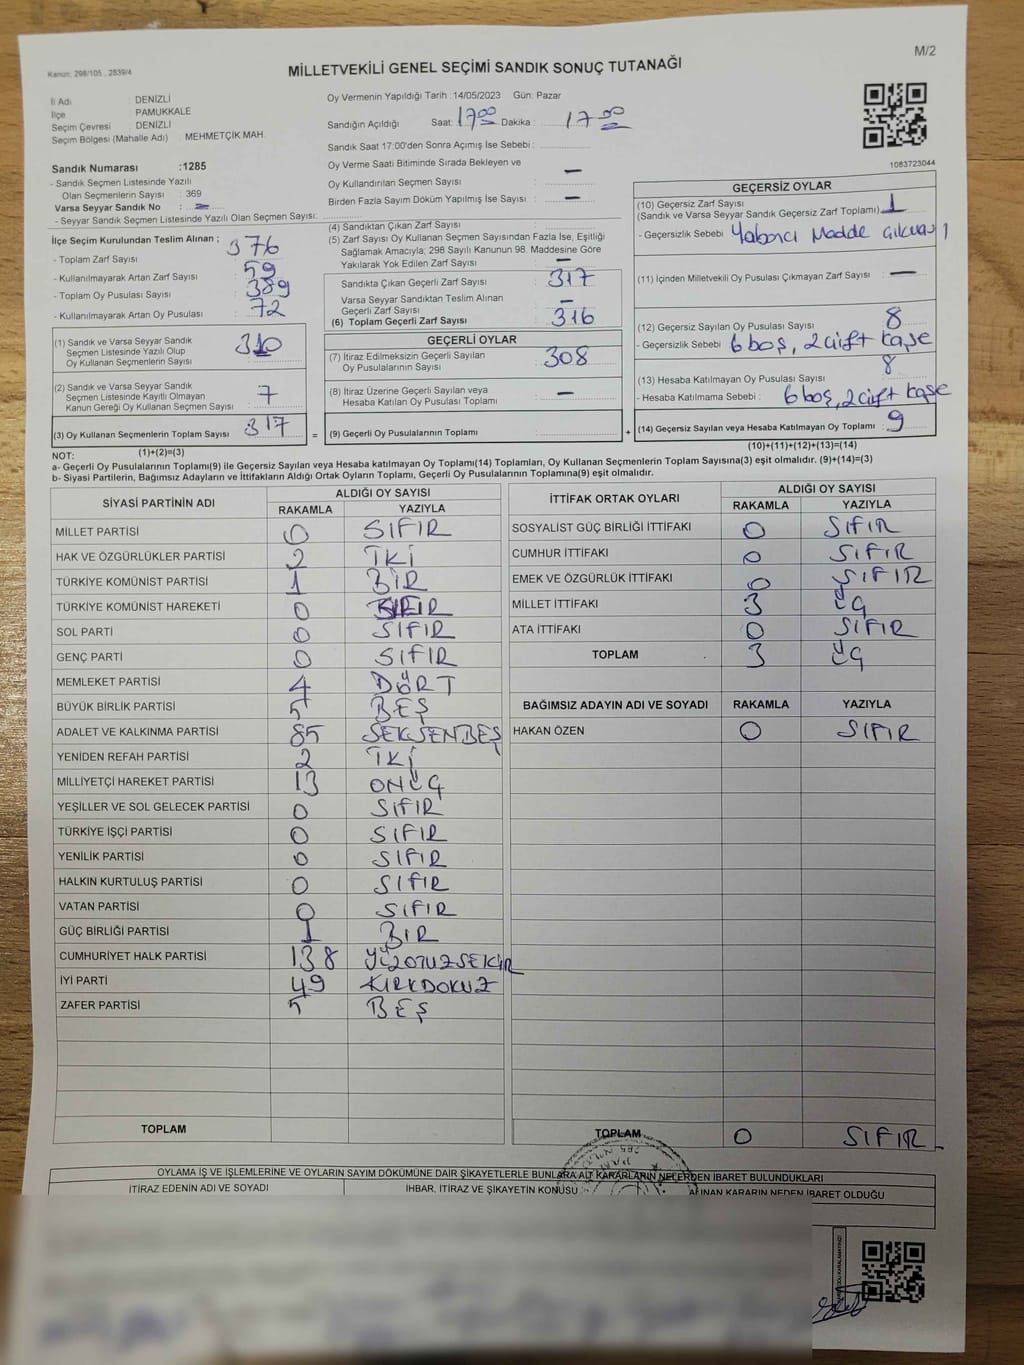 M/2
Kanun: 298/105 , 2839/4
MİLLETVEKİLİ GENEL SEÇİMİ SANDIK SONUÇ TUTANAĞI
İl Adı : DENİZLİ
İlçe PAMUKKALE
Seçim Çevresi : DENİZLİ
Seçim Bölgesi (Mahalle Adı) MEHMETÇİK MAH.
Sandık Numarası :1285
- Sandık Seçmen Listesinde Yazılı
Olan Seçmenlerin Sayısı : 369
Varsa Seyyar Sandık No : -
- Seyyar Sandık Seçmen Listesinde Yazılı Olan Seçmen Sayısı:
Oy Vermenin Yapıldığı Tarih :14/05/2023 Gün: Pazar
Sandığın Açıldığı Saat: 17 00 Dakika : 17 00
Sandık Saat 17:00'den Sonra Açımış İse Sebebi :
Oy Verme Saati Bitiminde Sırada Bekleyen ve
Oy Kullandırılan Seçmen Sayısı : -
Birden Fazla Sayım Döküm Yapılmış İse Sayısı : -
1083723044
İlçe Seçim Kurulundan Teslim Alınan ;
- Toplam Zarf Sayısı : 376
- Kullanılmayarak Artan Zarf Sayısı : 59
- Toplam Oy Pusulası Sayısı : 389
- Kullanılmayarak Artan Oy Pusulası : 72
(1) Sandık ve Varsa Seyyar Sandık
Seçmen Listesinde Yazılı Olup
Oy Kullanan Seçmenlerin Sayısı : 310
(2) Sandık ve Varsa Seyyar Sandık
Seçmen Listesinde Kayıtlı Olmayan
Kanun Gereği Oy Kullanan Seçmen Sayısı : 7
(3) Oy Kullanan Seçmenlerin Toplam Sayısı : 317
(1)+(2)=(3)
(4) Sandıktan Çıkan Zarf Sayısı :
(5) Zarf Sayısı Oy Kullanan Seçmen Sayısından Fazla İse, Eşitliği
Sağlamak Amacıyla; 298 Sayılı Kanunun 98. Maddesine Göre
Yakılarak Yok Edilen Zarf Sayısı : -
Sandıkta Çıkan Geçerli Zarf Sayısı : 317
Varsa Seyyar Sandıktan Teslim Alınan
Geçerli Zarf Sayısı : -
(6) Toplam Geçerli Zarf Sayısı : 316
GEÇERLİ OYLAR
(7) İtiraz Edilmeksizin Geçerli Sayılan
Oy Pusulalarının Sayısı : 308
(8) İtiraz Üzerine Geçerli Sayılan veya
Hesaba Katılan Oy Pusulası Toplamı : -
= (9) Geçerli Oy Pusulalarının Toplamı : +
GEÇERSİZ OYLAR
(10) Geçersiz Zarf Sayısı
(Sandık ve Varsa Seyyar Sandık Geçersiz Zarf Toplamı) : 1
- Geçersizlik Sebebi : Yabancı Madde Çıkması 1
(11) İçinden Milletvekili Oy Pusulası Çıkmayan Zarf Sayısı : -
(12) Geçersiz Sayılan Oy Pusulası Sayısı : 8
- Geçersizlik Sebebi : 6 boş, 2 çift kaşe
(13) Hesaba Katılmayan Oy Pusulası Sayısı : 8
- Hesaba Katılmama Sebebi : 6 boş, 2 çift kaşe
(14) Geçersiz Sayılan veya Hesaba Katılmayan Oy Toplamı : 9
(10)+(11)+(12)+(13)=(14)
NOT:
a- Geçerli Oy Pusulalarının Toplamı(9) ile Geçersiz Sayılan veya Hesaba katılmayan Oy Toplamı(14) Toplamları, Oy Kullanan Seçmenlerin Toplam Sayısına(3) eşit olmalıdır. (9)+(14)=(3)
b- Siyasi Partilerin, Bağımsız Adayların ve İttifakların Aldığı Ortak Oyların Toplamı, Geçerli Oy Pusulalarının Toplamına(9) eşit olmalıdır.
SİYASİ PARTİNİN ADI ALDIĞI OY SAYISI
RAKAMLA YAZIYLA
MİLLET PARTİSİ 0 SIFIR
HAK VE ÖZGÜRLÜKLER PARTİSİ 2 İKİ
TÜRKİYE KOMÜNİST PARTİSİ 1 BİR
TÜRKİYE KOMÜNİST HAREKETİ 0 SIFIR
SOL PARTİ 0 SIFIR
GENÇ PARTİ 0 SIFIR
MEMLEKET PARTİSİ 4 DÖRT
BÜYÜK BİRLİK PARTİSİ 5 BEŞ
ADALET VE KALKINMA PARTİSİ 85 SEKSENBEŞ
YENİDEN REFAH PARTİSİ 2 İKİ
MİLLİYETÇİ HAREKET PARTİSİ 13 ONÜÇ
YEŞİLLER VE SOL GELECEK PARTİSİ 0 SIFIR
TÜRKİYE İŞÇİ PARTİSİ 0 SIFIR
YENİLİK PARTİSİ 0 SIFIR
HALKIN KURTULUŞ PARTİSİ 0 SIFIR
VATAN PARTİSİ 0 SIFIR
GÜÇ BİRLİĞİ PARTİSİ 1 BIR
CUMHURİYET HALK PARTİSİ 138 YÜZOTUZSEKİR
İYİ PARTİ 49 KIRKDOKUZ
ZAFER PARTİSİ 5 BEŞ
TOPLAM
İTTİFAK ORTAK OYLARI ALDIĞI OY SAYISI
RAKAMLA YAZIYLA
SOSYALİST GÜÇ BİRLİĞİ İTTİFAKI 0 SIFIR
CUMHUR İTTİFAKI 0 SIFIR
EMEK VE ÖZGÜRLÜK İTTİFAKI 0 SIFIR
MİLLET İTTİFAKI 3 ÜÇ
ATA İTTİFAKI 0 SIFIR
TOPLAM 3 ÜÇ
BAĞIMSIZ ADAYIN ADI VE SOYADI RAKAMLA YAZIYLA
HAKAN ÖZEN 0 SIFIR
TOPLAM 0 SIFIR
OYLAMA İŞ VE İŞLEMLERİNE VE OYLARIN SAYIM DÖKÜMÜNE DAİR ŞİKAYETLERLE BUNLARA AİT KARARLARIN NELERDEN İBARET BULUNDUKLARI
İTİRAZ EDENİN ADI VE SOYADI İHBAR, İTİRAZ VE ŞİKAYETİN KONUSU ALINAN KARARIN NEDEN İBARET OLDUĞU